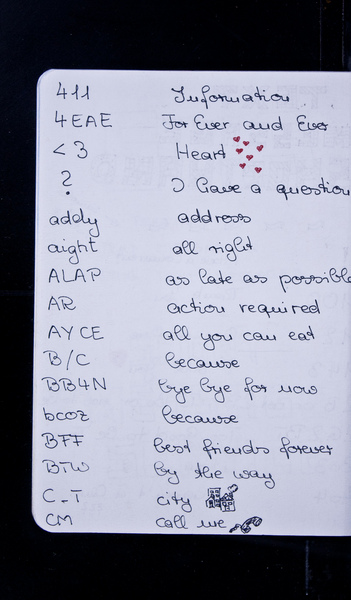 411 Information
4EAE For Ever and Ever
<3 Heart
? I have a question
addy address
aight all right
ALAP as late as possible
AR action required
AYCE all you can eat
B/C because
BB4N bye bye for now
bcoz because
BFF best friends forever
BTW by the way
C_T city
CM call me